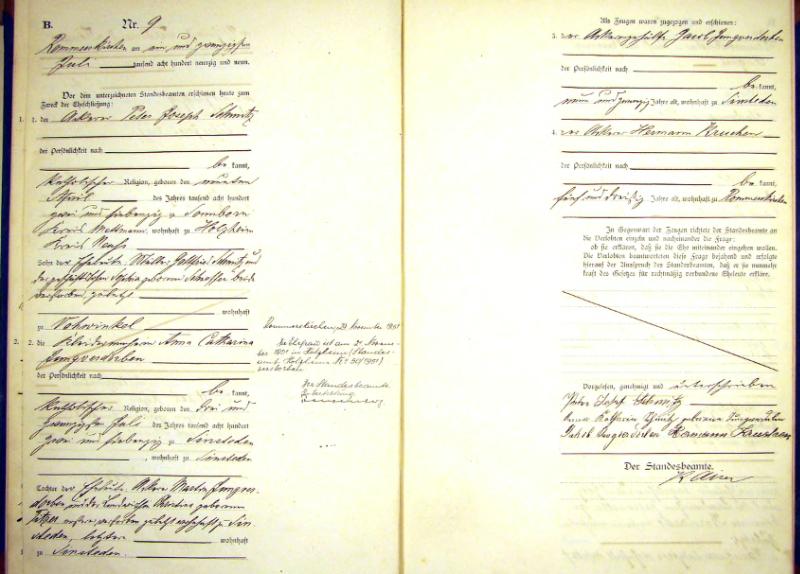 B.
Nr. 9
Rommerskirchen am ein und zwanzigsten
Juli tausend acht hundert neunzig und neun.
Vor dem unterzeichneten Standesbeamten erschienen heute zum
Zweck der Eheschließung:
1. der Ackerer Peter Joseph Schmitz
der Persönlichkeit nach
be kannt,
katholischer Religion, geboren den neunten
April des Jahres tausend acht hundert
zwei und siebenzig zu Sonnborn
Kreis Mettmann, wohnhaft zu Holzheim
Kreis Neuss
Sohn der Eheleute Gottfried Schmitz und
geborenen beide
verstorben, zuletzt
wohnhaft
zu Vohwinkel
2. die Anna Catharina
Jungverdorben
der Persönlichkeit nach
be kannt,
katholischer Religion, geboren den drei und
zwanzigsten Juli des Jahres tausend acht hundert
zwei und siebenzig zu Sinsteden
, wohnhaft zu Sinsteden
Tochter der Eheleute Ackerer Martin Jungver-
dorben und der Christina geborenen
ersterer verstorben zuletzt wohnhaft zu Sin-
steden, letztere wohnhaft
zu Sinsteden.
Rommerskirchen, November 1951
Die Ehefrau ist am 2. Novem-
ber 1951 in Holzheim (Standes-
amt Holzheim Nr. 50/1951)
verstorben
Der Standesbeamte
Als Zeugen waren zugezogen und erschienen:
3. der Ackergehülfe Jacob Jungverdorben
der Persönlichkeit nach
be kannt,
neun und zwanzig Jahre alt, wohnhaft zu Sinsteden
4. der Ackerer Hermann Kruchen
der Persönlichkeit nach
be kannt,
fünf und dreißig Jahre alt, wohnhaft zu Rommerskirchen
In Gegenwart der Zeugen richtete der Standesbeamte an
die Verlobten einzeln und nacheinander die Frage:
ob sie erklären, daß sie die Ehe miteinander eingehen wollen.
Die Verlobten beantworteten diese Frage bejahend und erfolgte
hierauf der Ausspruch des Standesbeamten, daß er sie nunmehr
kraft des Gesetzes für rechtmäßig verbundene Eheleute erkläre.
Vorgelesen, genehmigt und unterschrieben
Peter Josef Schmitz
Anna Katharina Schmitz geborene Jungverdorben
Jakob Jungverdorben Hermann Kruchen
Der Standesbeamte.